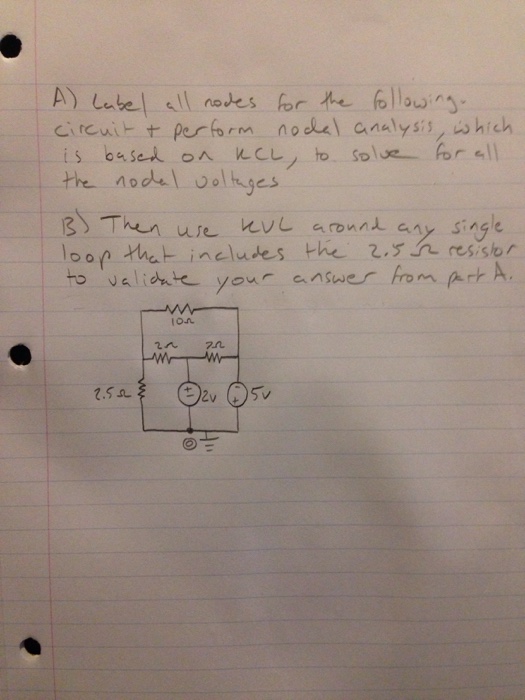 A) Label all nodes for the following
circuit + perform nodal analysis, which
is based on KCL, to solve for all
the nodal voltages
B) Then use KVL around any single
loop that includes the 2.5 Ω resistor
to validate your answer from part A.
10Ω
2Ω 2Ω
2.5Ω + - 2v - + 5v
0